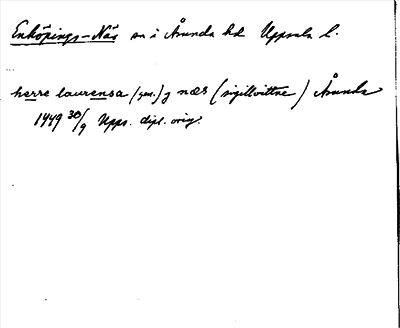 Enköpings-Näs sn i Åsunda hd Uppsala l.
herre laurensa (gen.) j næs (sigillvittne) Åsunda
1449 30/9 Upps. dipl. orig.